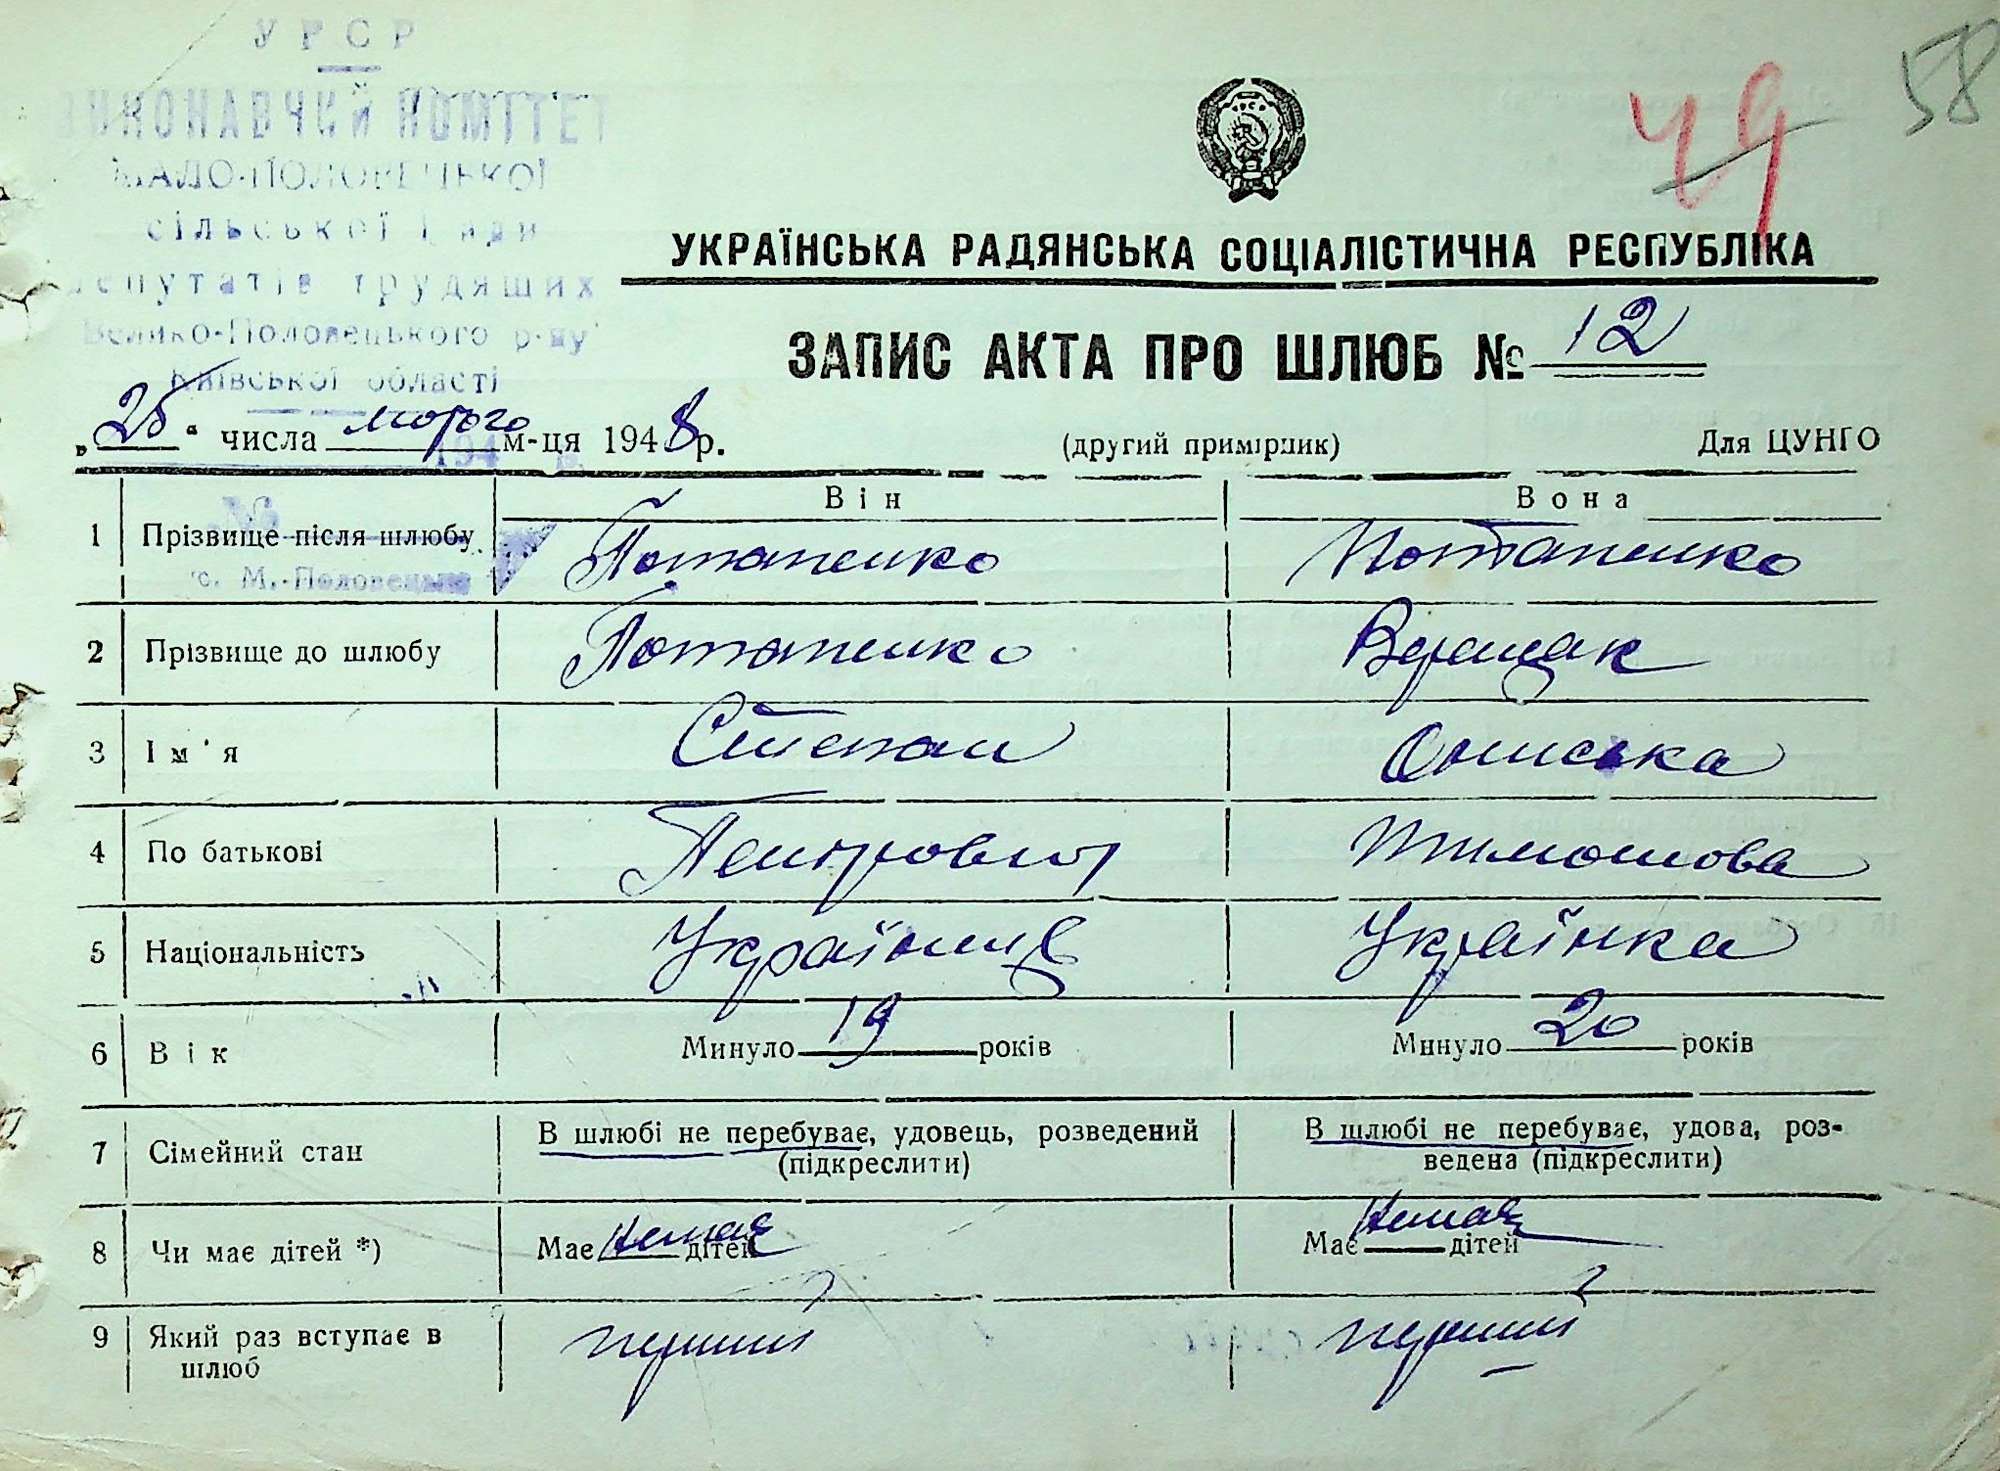 58
49
УРСР
ВИКОНАВЧИЙ КОМІТЕТ
МАЛО-ПОЛОВЕЦЬКОЇ
сільської Ради
депутатів трудящих
Велико-Половецького р-ну
Київської області
194
№
с. М.-Половецьке
УКРАЇНСЬКА РАДЯНСЬКА СОЦІАЛІСТИЧНА РЕСПУБЛІКА
ЗАПИС АКТА ПРО ШЛЮБ № 12
„25“ числа лютого м-ця 1948 р. (другий примірник) Для ЦУНГО
Він Вона
1 Прізвище після шлюбу Потапенко Потапенко
2 Прізвище до шлюбу Потапенко Верещак
3 Ім'я Степан Ониська
4 По батькові Петрович Тимошова
5 Національність Українец Українка
6 Вік Минуло 19 років Минуло 20 років
7 Сімейний стан В шлюбі не перебуває, удовець, розведений В шлюбі не перебуває, удова, роз-
(підкреслити) ведена (підкреслити)
8 Чи має дітей *) Має немає дітей Має немає дітей
9 Який раз вступає в перший перший
шлюб